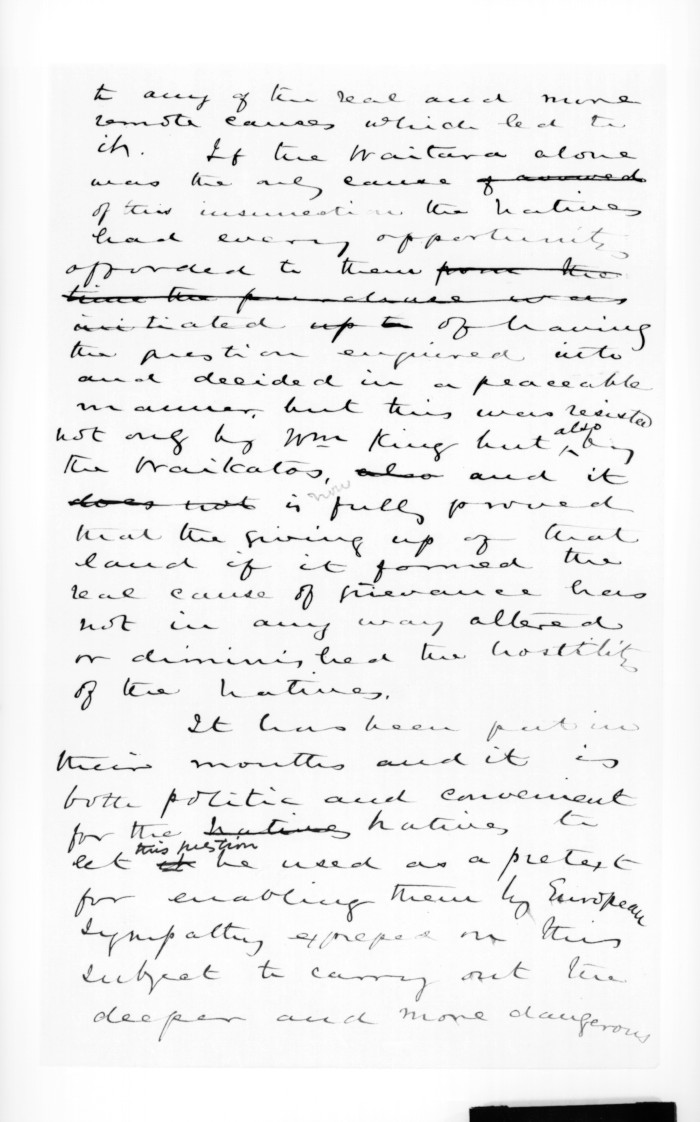 to any of the real and more
remote causes which led to
it. If the Waitara alone
was the only cause of avowed
of this insurrection the Natives
had every opportunity
afforded to them from the
time the purchase was
initiated up to of having
the question enquired into
and decided in a peaceable
manner, but this was resisted
not only by Wm King but also by
the Waikatos, also and it
does not is now fully proved
that the giving up of that
land if it formed the
real cause of grievance has
not in any way altered
or diminished the hostility
of the Natives.
It has been put in
their mouths and it is
both politic and convenient
for the Natives Natives to
let it this question be used as a pretext
for enabling them by European
Sympathy expressed on this
subject to carry out the
deeper and more dangerous